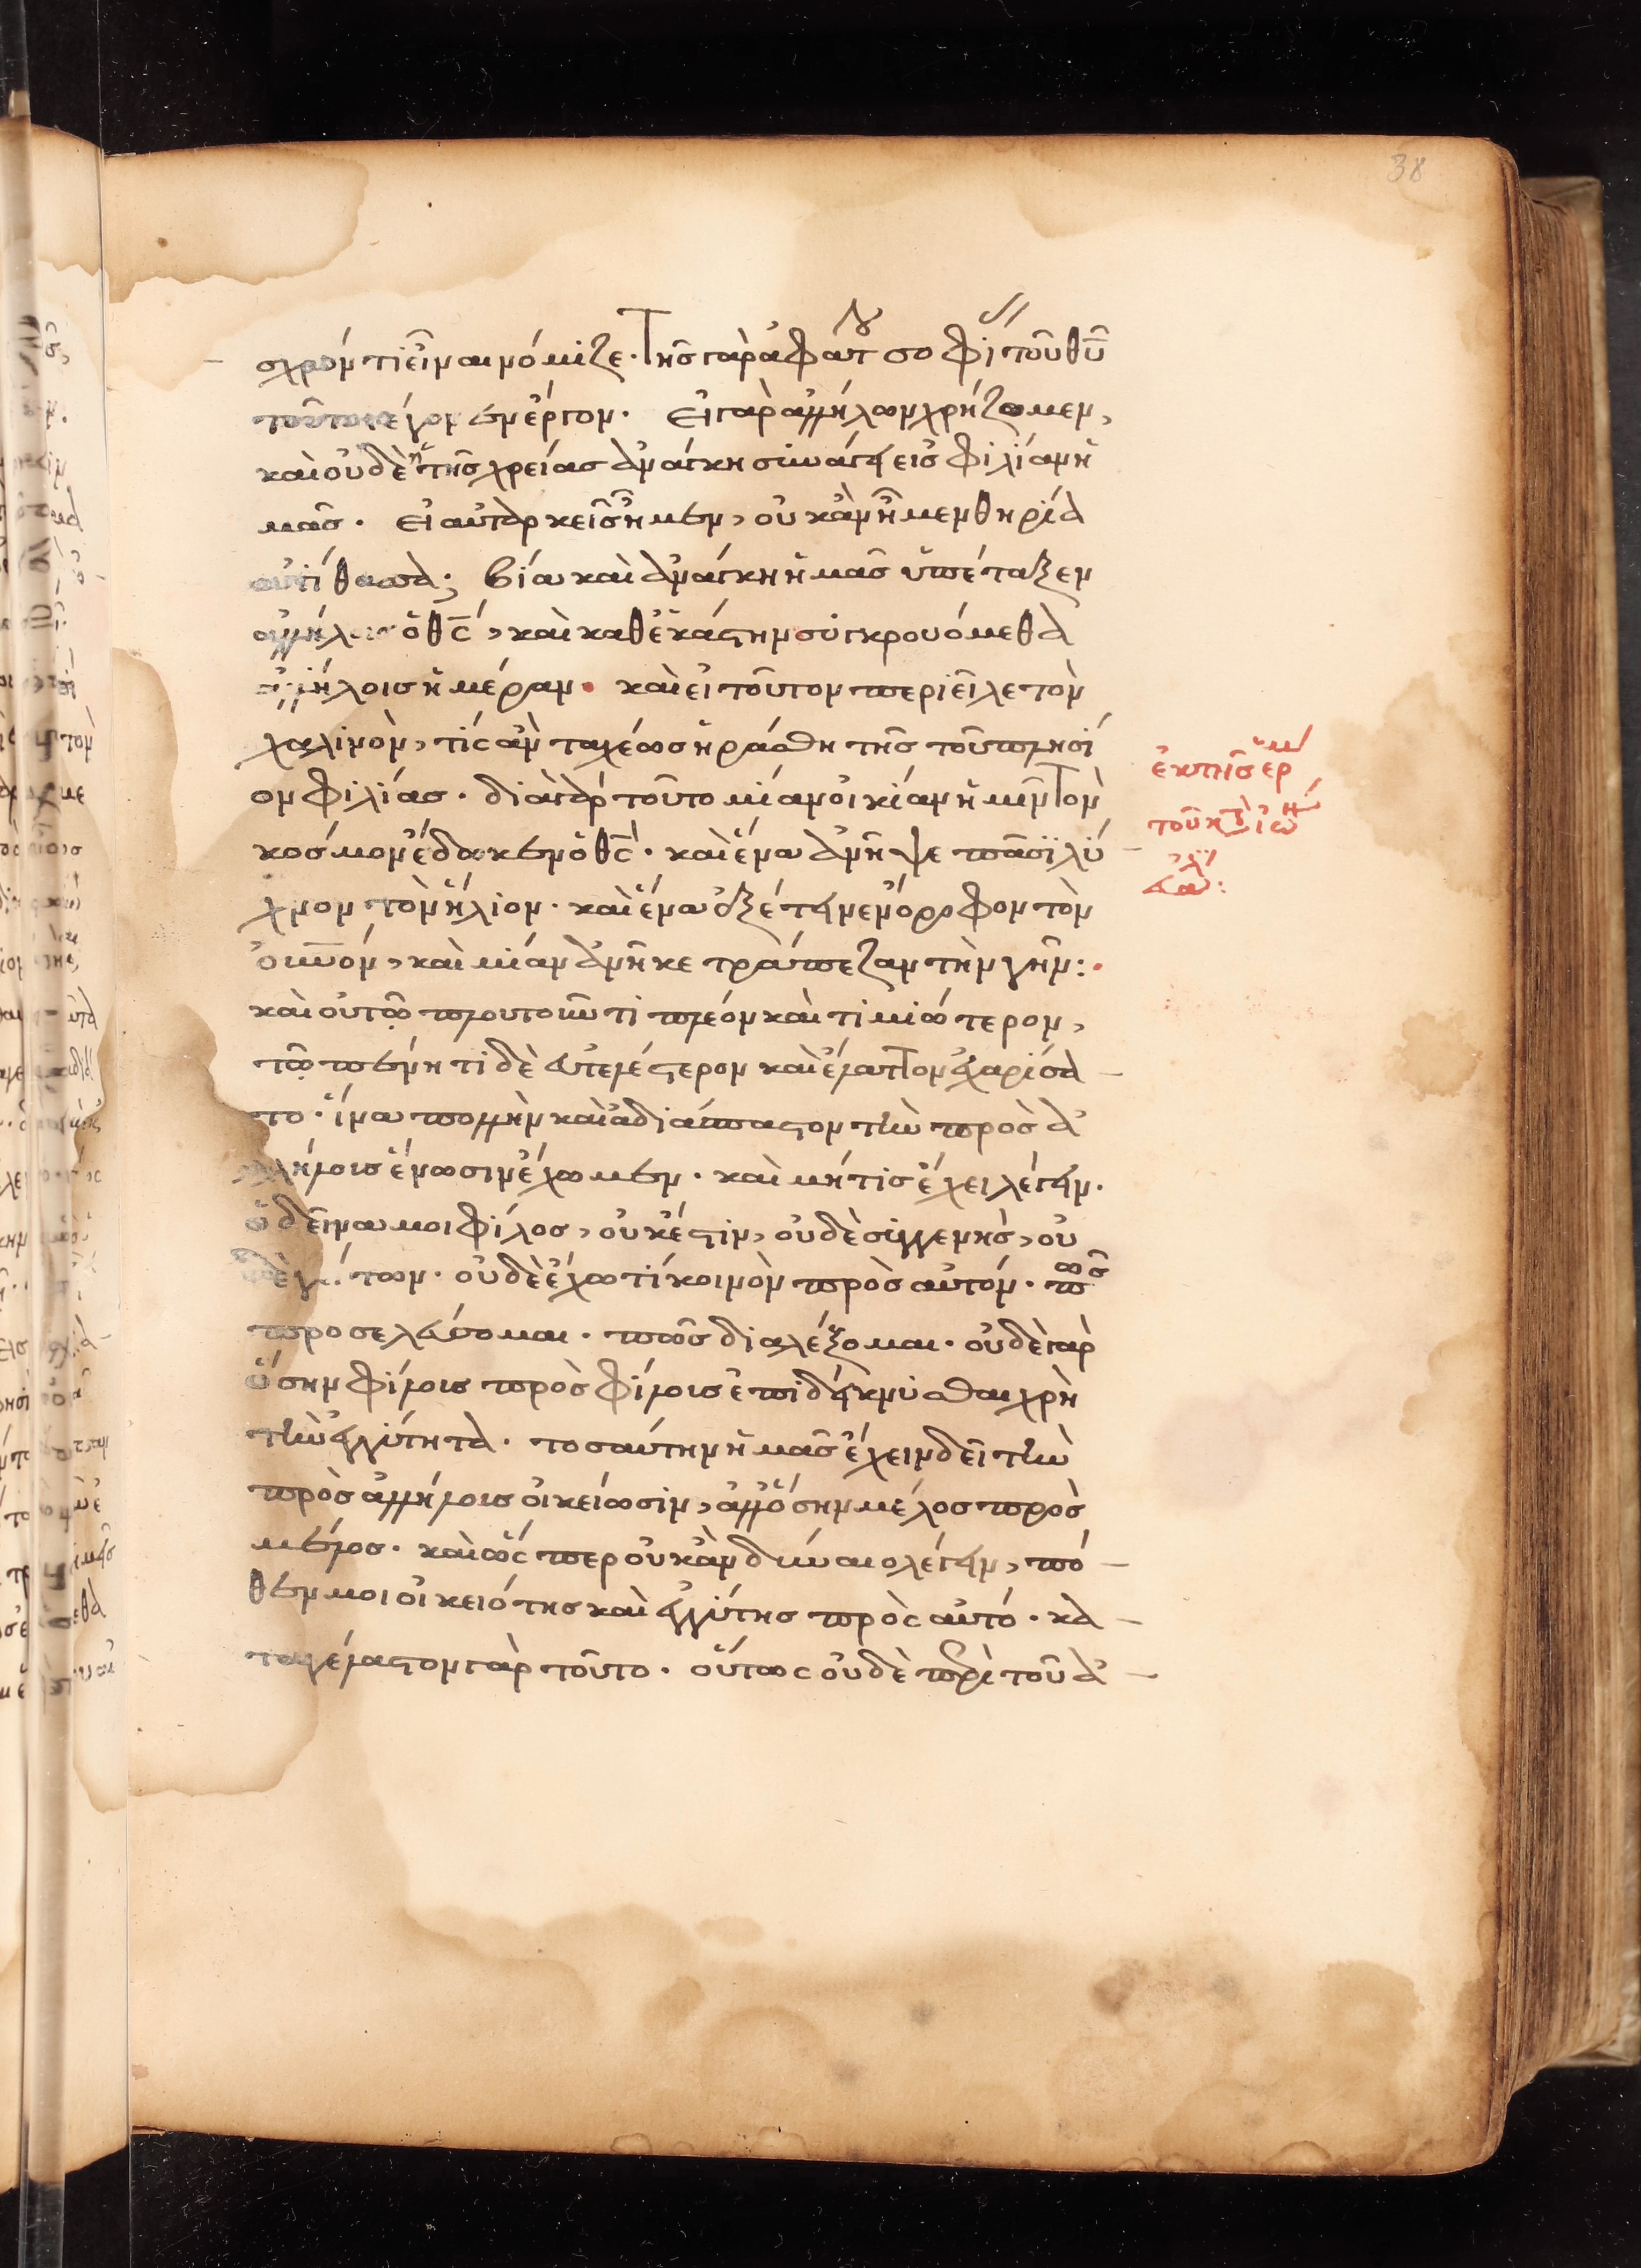 38
σχρόν τι εἶναι νόμιζε. Τῆς γὰρ ἀφάτου σοφίας τοῦ θῦ
τοῦτο γέγονεν ἔργον. Εἰ γὰρ ἀλλήλων χρήζομεν,
καὶ οὐδὲ ἡ τῆς χρείας ἀνάγκη συνάγει εἰς φιλίαν ἡ
μᾶς. εἰ αὐτάρκεις ἦμεν, οὐκ ἂν ἦμεν θηρία
ἀτίθασα; βία καὶ ἀνάγκη ἡμᾶς ὑπέταξεν
ἀλλήλοις ὁ θς, καὶ καθ ἑκάστην συγκρουόμεθα
ἀλλήλοις ἡμέραν. καὶ εἰ τοῦτον περιεῖλε τὸν
χαλινὸν, τίς ἂν ταχέως ἠράσθη τῆς τοῦ πλησί
ον φιλίας. διὰ γὰρ τοῦτο μίαν οἰκίαν ἡμῖν τὸν
κόσμον ἔδωκεν ὁ θς. καὶ ἕνα ἀνῆψε πᾶσι λύ
χνον τὸν ἥλιον. καὶ ἕνα ἐξέτεινεν ὄροφον τὸν
οὐνον, καὶ μίαν ἀνῆκε τράπεζαν τὴν γῆν:
καὶ οὔτε τῷ πλουτοῦντι πλέον καὶ τιμιώτερον,
τῷ πένητι δὲ εὐτελέστερον καὶ ἔλαττον ἐχαρίσα
το. ἵνα πολλὴν καὶ ἀδιάσπαστον τὴν πρὸς ἀ
λλήλους ἕνωσιν ἔχωμεν. καὶ μή τις ἔχει λέγειν.
ὁ δεῖνα μοι φίλος, οὐκ ἔστιν, οὐδὲ συγγενὴς, οὐ
δὲ γείτων. οὐδὲ ἔχω τί κοινὸν πρὸς αὐτόν. πῶς
προσελεύσομαι. πῶς διαλέξομαι. οὐδὲ γὰρ
ὅσην φίλους πρὸς φίλους ἐπιδείκνυσθαι χρὴ
τὴν ἐγγύτητα. τοσαύτην ἡμᾶς ἔχειν δεῖ τὴν
πρὸς ἀλλήλους οἰκείωσιν, ἀλλ ὅσην μέλος πρὸς
μέλος. καὶ ὥς περ οὐκ ἂν δύναιο λέγειν, πό
θεν μοι οἰκειότης καὶ ἐγγύτης πρὸς αὐτό. κα
ταγέλαστον γὰρ τοῦτο. οὕτως οὐδὲ περὶ τοῦ ἀ
ἐκ τῆς ἑρμ